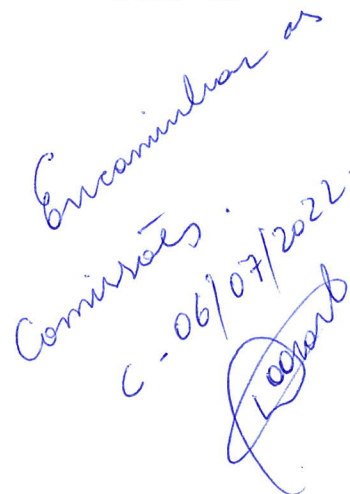 Encaminhar as
Comissões.
C - 06/07/2022.